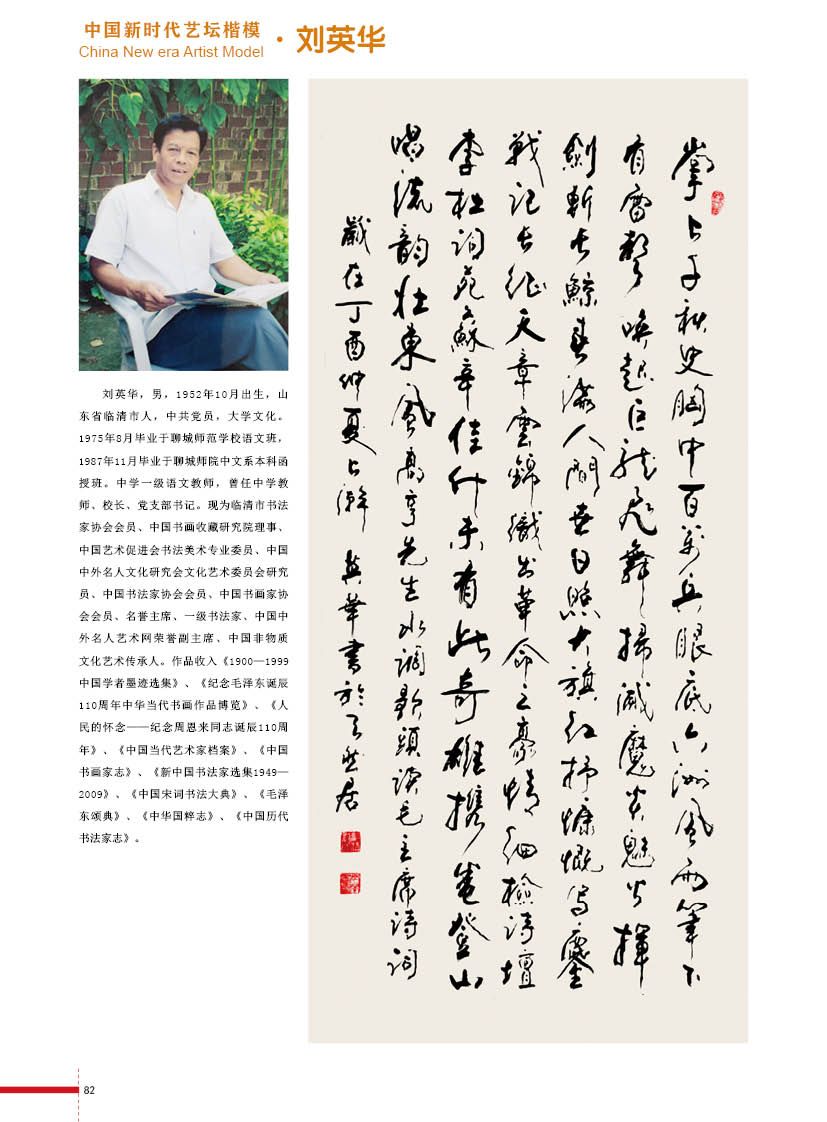 中国新时代艺坛楷模
China New era Artist Model
·刘英华
刘英华，男，1952年10月出生，山
东省临清市人，中共党员，大学文化。
1975年8月毕业于聊城师范学校语文班，
1987年11月毕业于聊城师院中文系本科函
授班。中学一级语文教师，曾任中学教
师、校长、党支部书记。现为临清市书法
家协会会员、中国书画收藏研究院理事、
中国艺术促进会书法美术专业委员、中国
中外名人文化研究会文化艺术委员会研究
员、中国书法家协会会员、中国书画家协
会会员、名誉主席、一级书法家、中国中
外名人艺术网荣誉副主席、中国非物质
文化艺术传承人。作品收入《1900—1999
中国学者墨迹选集》、《纪念毛泽东诞辰
110周年中华当代书画作品博览》、《人
民的怀念——纪念周恩来同志诞辰110周
年》、《中国当代艺术家档案》、《中国
书画家志》、《新中国书法家选集1949—
2009》、《中国宋词书法大典》、《毛泽
东颂典》、《中华国粹志》、《中国历代
书法家志》。
掌上千秋史胸中百萬兵眼底六洲風雨筆下
有雷聲喚起巨龍飛舞掃滅魔炎魅火揮
劍斬長鯨春滿人間世日照大旗紅抒慷慨写鏖
戰記長征天章雲錦織出革命之豪情細檢詩壇
李杜詞苑蘇辛佳什未有此奇雄攜卷登山
唱流韻壮東風高亨先生水調歌頭讀毛主席詩詞
歲在丁酉仲夏上澣 英華書於天然居
82